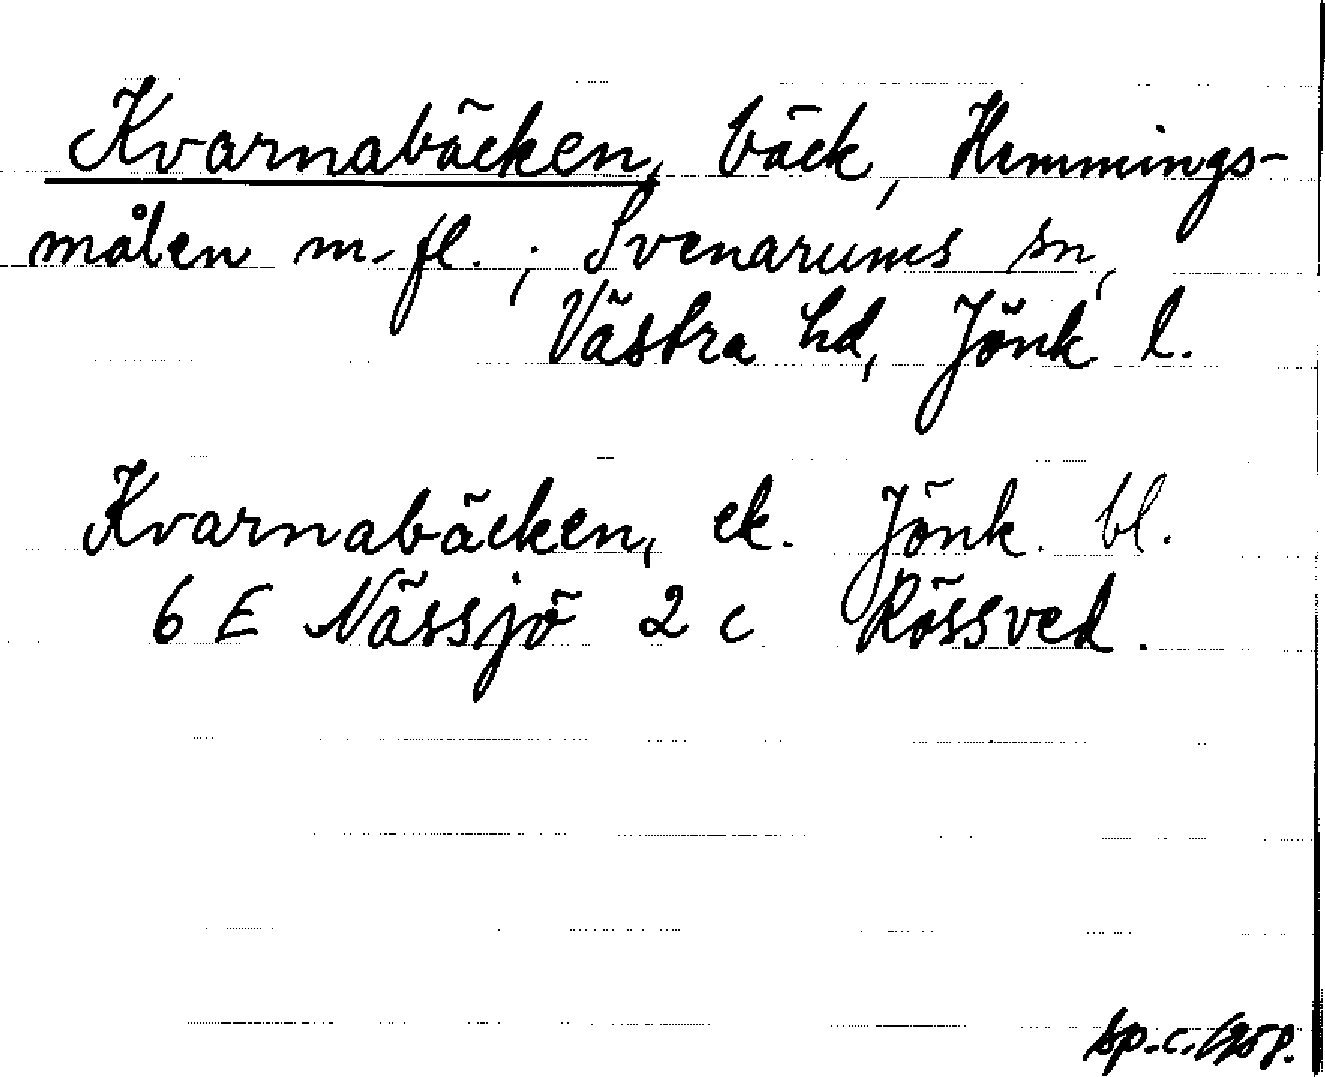 Kvarnabäcken, bäck, Hemmings-
målen m.fl.; Svenarums sn,
Västra hd, Jönk l.
Kvarnabäcken, ek. Jönk. bl.
6 E Nässjö 2 c Rössved.
sp.c. 1958.